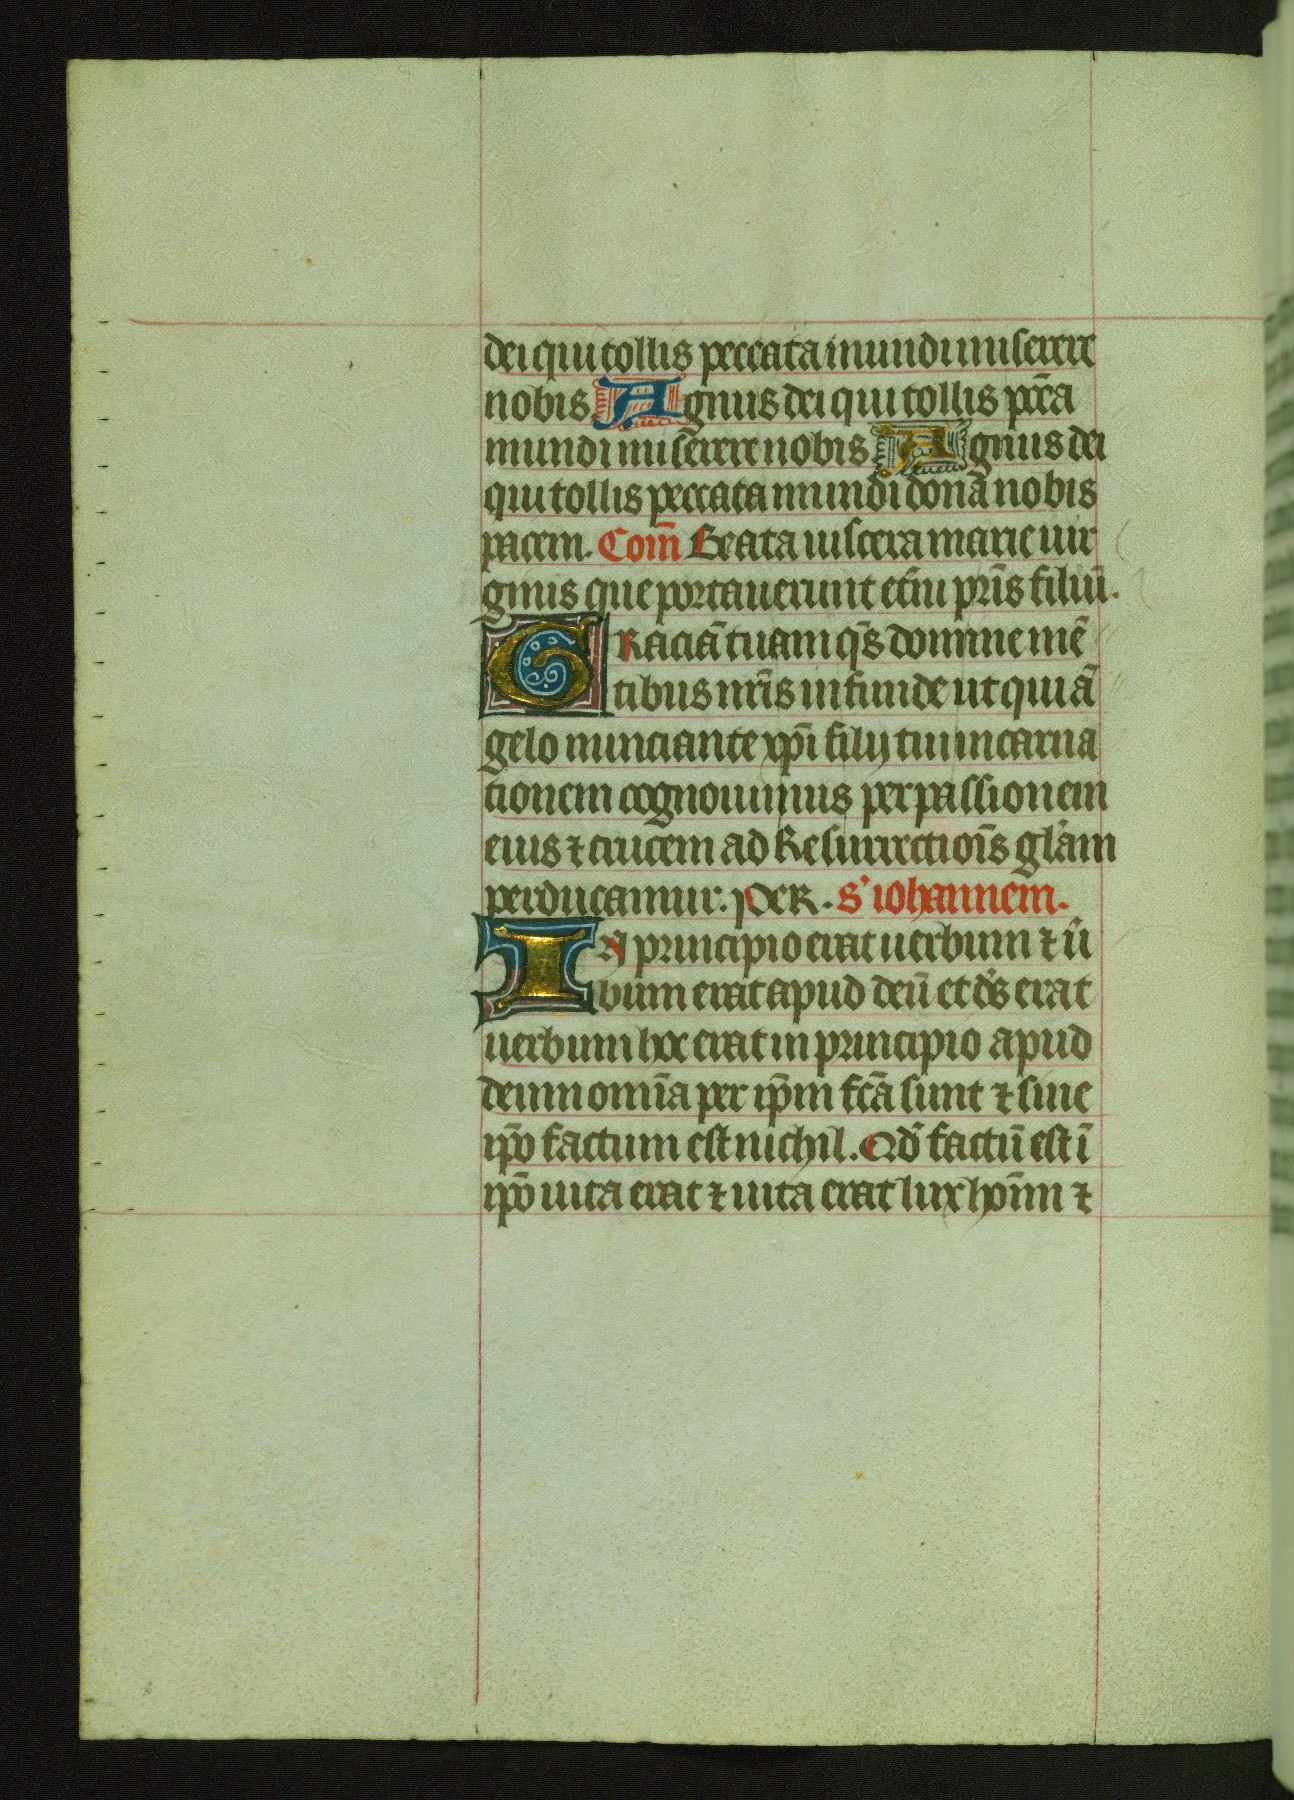 dei qui tollis peccata mundi miserere
nobis Agnus dei qui tollis pc̄c̄a
mundi miserere nobis Agnus dei
qui tollis peccata mundi dona nobis
pacem. Com̄ Beata uiscera marie uir
ginis que portauerunt et̄ni pr̄is filiū.
GRaciā tuam qs̄ domine mē
tibus nr̄is infunde ut qui ā
gelo nunciante xp̄i filij tui incarna
tionem cognouimus per passionem
eius ⁊ crucem ad Resurrectiōis gl'am
perducamur. PeR. s' iohannem.
IN principio erat uerbum ⁊ ū
bum erat apud deū et ds̄ erat
uerbum hoc erat in principio apud
deum omīa per ip̄m fc̄a sunt ⁊ sine
ip̄o factum est nichil. Qd' factū est ī
ip̄o uita erat ⁊ uita erat lux hoīm ⁊